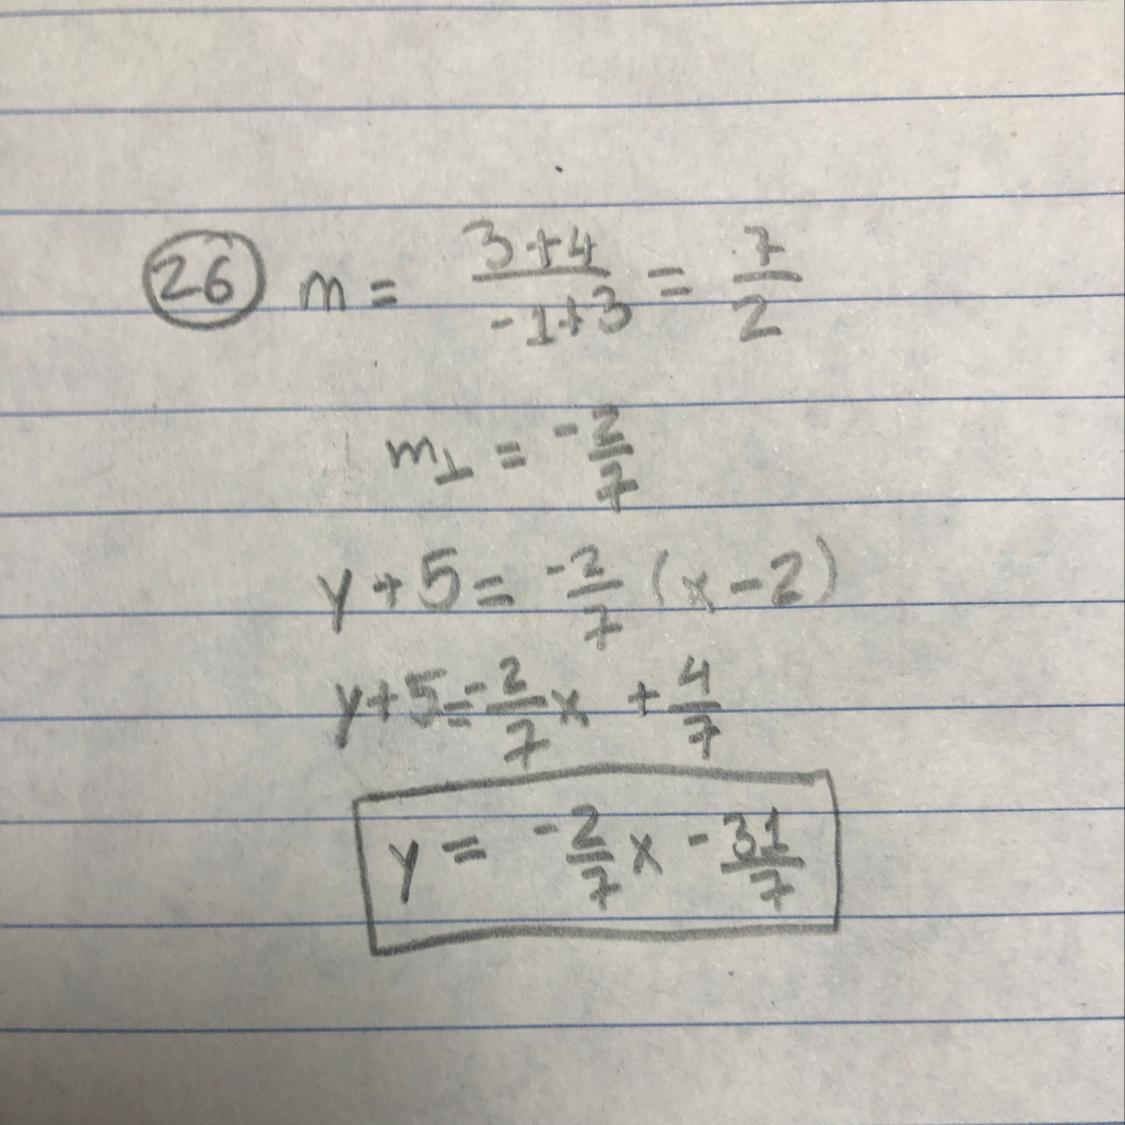 26 m = (3+4)/(-1+3) = 7/2
m⊥ = -2/7
y+5 = -2/7 (x-2)
y+5 = -2/7 x + 4/7
y = -2/7 x - 31/7